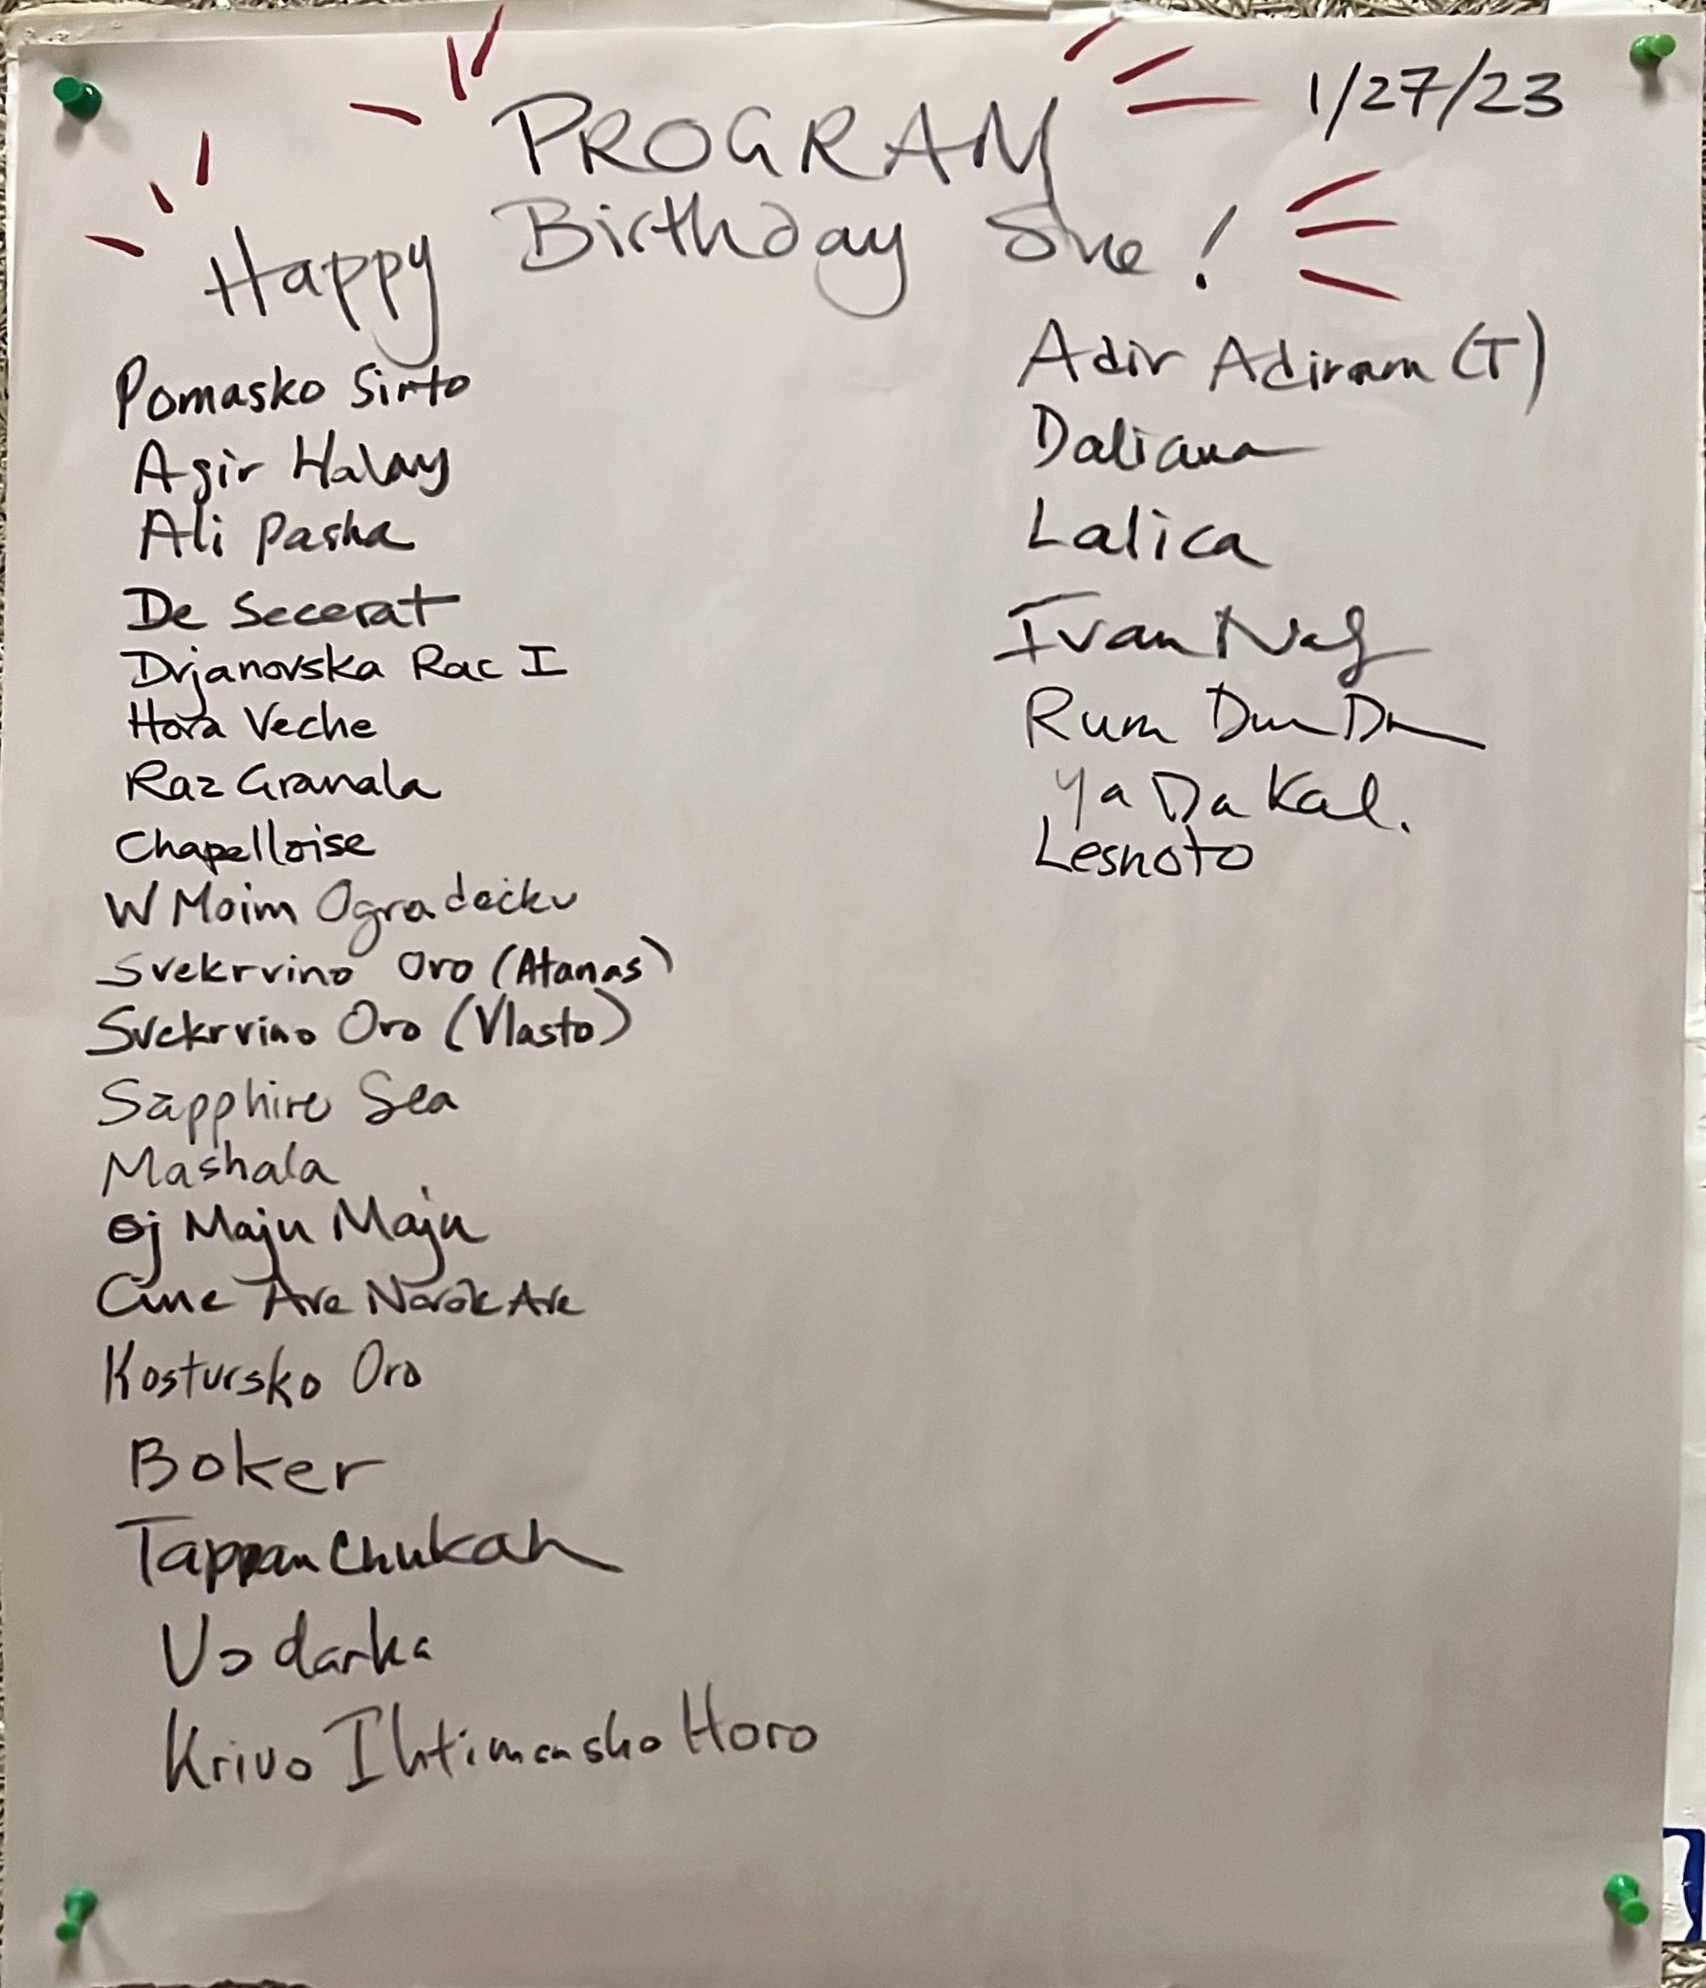 1/27/23
PROGRAM
Happy Birthday Sue!
Pomasko Sirto
Agir Halay
Ali Pasha
De Secerat
Drjanovska Rac I
Hora Veche
Raz Granala
Chapelloise
W Moim Ogradečku
Svekrvino Oro (Atanas)
Svekrvino Oro (Vlasto)
Sapphire Sea
Mashala
Oj Maju Maju
Cine Are Norok Are
Kostursko Oro
Boker
Tappan Chukah
Vodarka
Krivo Ihtimansko Horo
Adir Adiram (T)
Daliana
Lalica
Ivan
Rum Dum Dum
Ya Da Kal.
Lesnoto